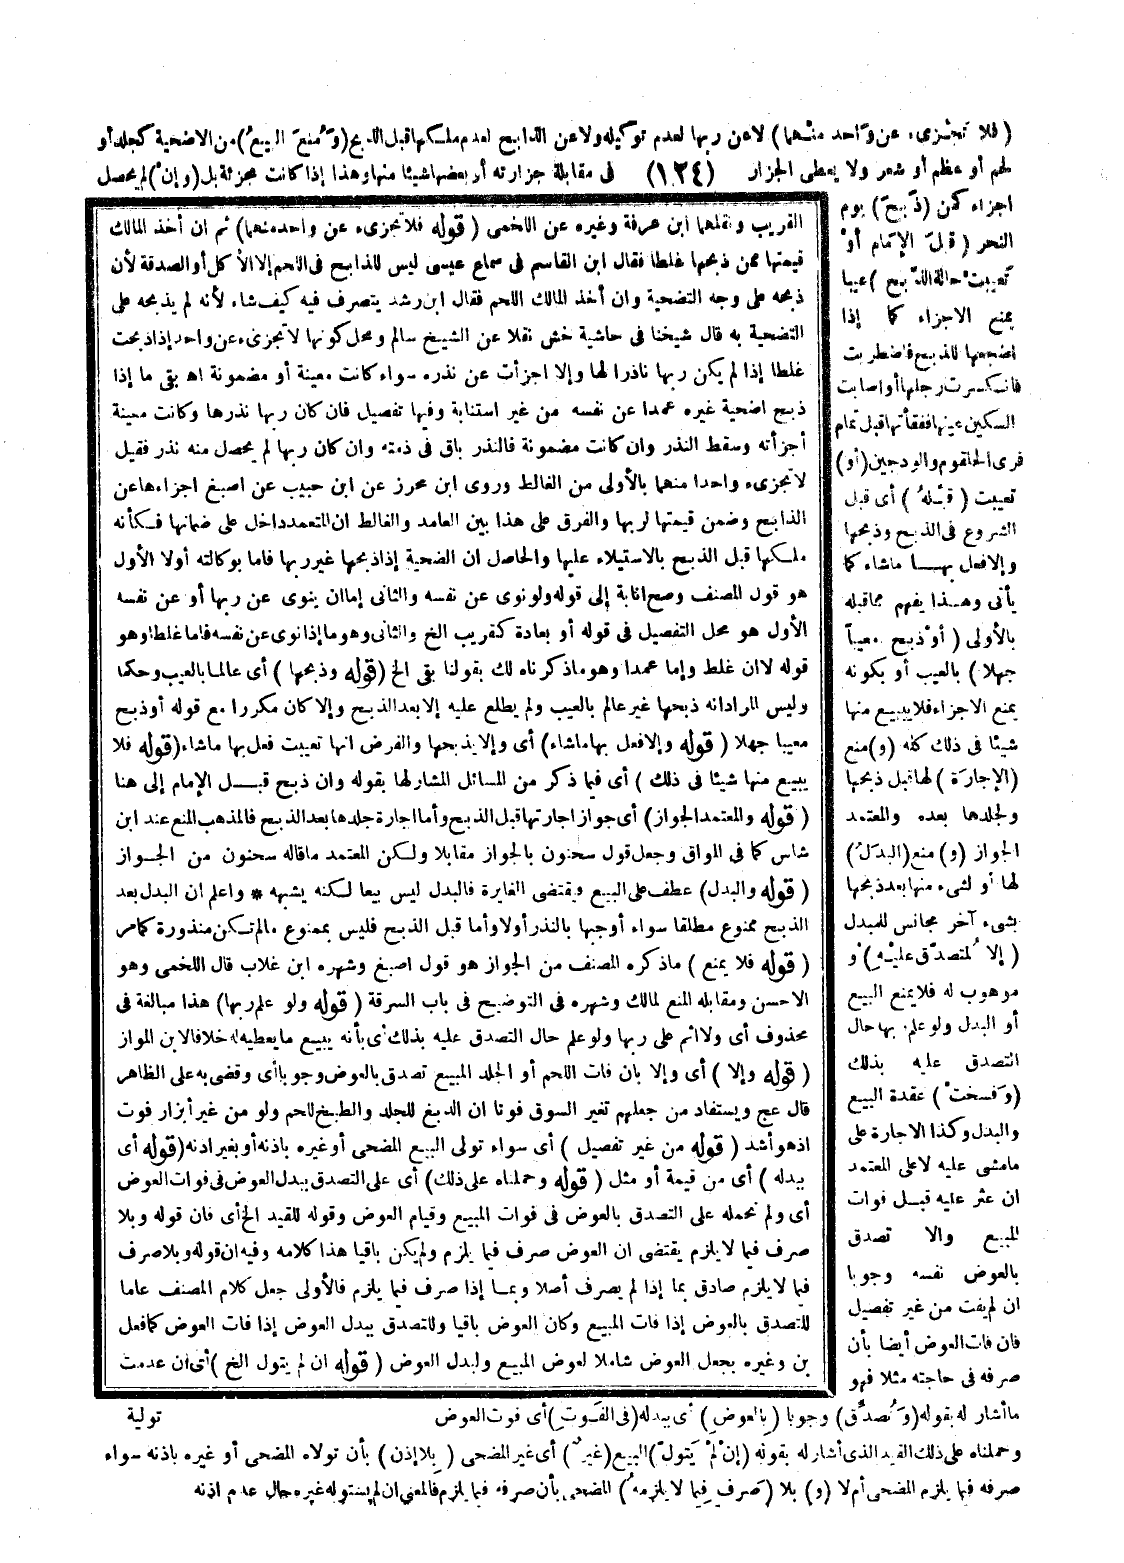 ( فلا تجزىء عن واحد منهما ) لاعن ربها لعدم توكيله ولا عن الذابح لعدم ملكها قبل الذبح (وَمُنعَ البيعُ) من الاضحية كجلد أو
لحم أو عظم أو شعر ولا يعطى الجزار (١٢٤) فى مقابلة جزارته أو بعضها شيئا منها وهذا إذا كانت مجزئة بل (وإنْ) لم يحصل
اجزاء كمن (ذَبحَ) يوم
النحر (قبلَ الإمَام أوْ
تَعيبتْ حالةَ الذّبح ) عيبا
يمنع الاجزاء كما إذا
اضجعها للذبح فاضطربت
فانكسرت رجلها أو اصابت
السكين عينها ففقأتها قبل تمام
فرى الحلقوم والودجين (أو)
تعيبت ( قبْلهُ ) أى قبل
الشروع فى الذبح وذبحها
والافعل بهــا ماشاء كما
يأتى وهــذا يفهم مما قبله
بالأولى ( أوْ ذبح معيباً
جهلا ) بالعيب أو بكونه
يمنع الاجزاء فلا يبيع منها
شيئا فى ذلك كله (و) منع
(الإجارَة ) لها قبل ذبحها
ولجلدها بعده والمعتمد
الجواز (و) منع (البدَلُ)
لها أو لشىء منها بعد ذبحها
بشىء آخر مجانس للمبدل
( إلا لمُتصدّق عليْهِ ) و
موهوب له فلا يمنع البيع
أو البدل ولو علم ربها حال
التصدق عليه بذلك
(وَفسختْ ) عقدة البيع
والبدل وكذا الاجارة على
مامشى عليه لا على المعتمد
ان عثر عليه قبل فوات
المبيع والا تصدق
بالعوض نفسه وجوبا
ان لم يفت من غير تفصيل
فان فات العوض أيضا بأن
صرفه فى حاجته مثلا فهو
القريب ونقلهما ابن عرفة وغيره عن اللخمى ( قوله فلا تجزىء عن واحد منهما ) ثم ان أخذ المالك
قيمتها ممن ذبحها غلطا فقال ابن القاسم فى سماع عيسى ليس للذابح فى اللحم إلا الأكل أو الصدقة لأن
ذبحه على وجه التضحية وان أخذ المالك اللحم فقال ابن رشد يتصرف فيه كيف شاء لأنه لم يذبحه على
التضحية به قال شيخنا فى حاشية خش نقلا عن الشيخ سالم ومحل كونها لا تجزىء عن واحد إذا ذبحت
غلطا إذا لم يكن ربها ناذرا لها وإلا اجزأت عن نذره سواء كانت معينة أو مضمونة اه بقى ما إذا
ذبح اضحية غيره عمدا عن نفسه من غير استنابة وفيها تفصيل فان كان ربها نذرها وكانت معينة
أجزأته وسقط النذر وان كانت مضمونة فالنذر باق فى ذمته وان كان ربها لم يحصل منه نذر فقيل
لا تجزىء واحدا منهما بالأولى من الغالط وروى ابن محرز عن ابن حبيب عن اصبغ اجزاءها عن
الذابح وضمن قيمتها لربها والفرق على هذا بين العامد والغالط ان المتعمد داخل على ضمانها فكأنه
ملكها قبل الذبح بالاستيلاء عليها والحاصل ان الضحية إذا ذبحها غير ربها فاما بوكالته أولا الأول
هو قول المصنف وصح انابة إلى قوله ولو نوى عن نفسه والثانى إما ان ينوى عن ربها أو عن نفسه
الأول هو محل التفصيل فى قوله أو بعادة كقريب الخ والثانى وهو ما إذا نوى عن نفسه فاما غلطا وهو
قوله لا ان غلط وإما عمدا وهو ماذكرناه لك بقولنا بقى الخ (قوله وذبحها ) أى عالما بالعيب وحكمه
وليس المراد انه ذبحها غير عالم بالعيب ولم يطلع عليه إلا بعد الذبح وإلا كان مكررا مع قوله أو ذبح
معيبا جهلا ( قوله وإلا فعل بها ماشاء) أى وإلا يذبحها والفرض انها تعيبت فعل بها ماشاء (قوله فلا
يبيع منها شيئا فى ذلك ) أى فيما ذكر من المسائل المشار لها بقوله وان ذبح قبــل الإمام إلى هنا
( قوله والمعتمد الجواز) أى جواز اجارتها قبل الذبح وأما اجارة جلدها بعد الذبح فالمذهب المنع عند ابن
شاس كما فى المواق وجعل قول سحنون بالجواز مقابلا ولكن المعتمد ماقاله سحنون من الجــواز
( قوله والبدل) عطف على البيع ومقتضى المغايرة فالبدل ليس بيعا لكنه يشبهه * واعلم ان البدل بعد
الذبح ممنوع مطلقا سواء أوجبها بالنذر أولا وأما قبل الذبح فليس بممنوع مالم تكن منذورة كما مر
( قوله فلا يمنع ) ماذكره المصنف من الجواز هو قول اصبغ وشهره ابن غلاب قال اللخمى وهو
الاحسن ومقابله المنع لمالك وشهره فى التوضيح فى باب السرقة ( قوله ولو علم ربها) هذا مبالغة فى
محذوف أى ولا اثم على ربها ولو علم حال التصدق عليه بذلك أى بأنه يبيع ما يعطيه له خلافا لابن المواز
( قوله وإلا ) أى وإلا بان فات اللحم أو الجلد المبيع تصدق بالعوض وجوبا أى وقضى به على الظاهر
قال عج ويستفاد من جعلهم تغير السوق فوتا ان الدبغ للجلد والطبخ للحم ولو من غير أبزار فوت
اذ هو أشد ( قوله من غير تفصيل ) أى سواء تولى البيع المضحى أو غيره باذنه أو بغير اذنه (قوله أى
بدله ) أى من قيمة أو مثل ( قوله وحملناه على ذلك) أى على التصدق ببدل العوض فى فوات العوض
أى ولم نحمله على التصدق بالعوض فى فوات المبيع وقيام العوض وقوله للقيد الخ أى فان قوله وبلا
صرف فيما لا يلزم يقتضى ان العوض صرف فيما يلزم ولم يكن باقيا هذا كلامه وفيه ان قوله وبلا صرف
فيما لا يلزم صادق بما إذا لم يصرف أصلا وبمــا إذا صرف فيما يلزم فالأولى جعل كلام المصنف عاما
للتصدق بالعوض إذا فات المبيع وكان العوض باقيا وللتصدق ببدل العوض إذا فات العوض كما فعل
بن وغيره بجعل العوض شاملا لعوض المبيع ولبدل العوض ( قوله ان لم يتول الخ ) أى ان عدمت
تولية
ما أشار له بقوله (وَتُصدّق) وجوبا (بِالعوض) أى ببدله (فى الفَوت) أى فوت العوض
وحملناه على ذلك القيد الذى أشار له بقوله (إنْ لمْ يَتولّ) البيع (غيرٌ) أى غير المضحى ( بِلا إذن ) بأن تولاه المضحى أو غيره باذنه سواء
صرفه فيما يلزم المضحى أم لا (و) بلا (صَرف فيما لا يلزمهُ) المضحى بأن صرفه فيما يلزم فالمعنى ان لم يتوله غيره حال عدم اذنه